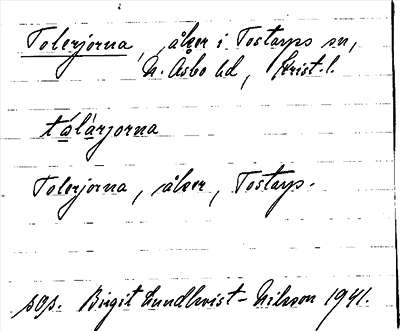 Tolerjorna, åker i Tostarps sn,
N. Åsbo hd, Krist. l.
tålàrjorna
Tolerjorna, åker, Tostarp.
sgs. Birgit Lundkvist-Nilsson 1941.